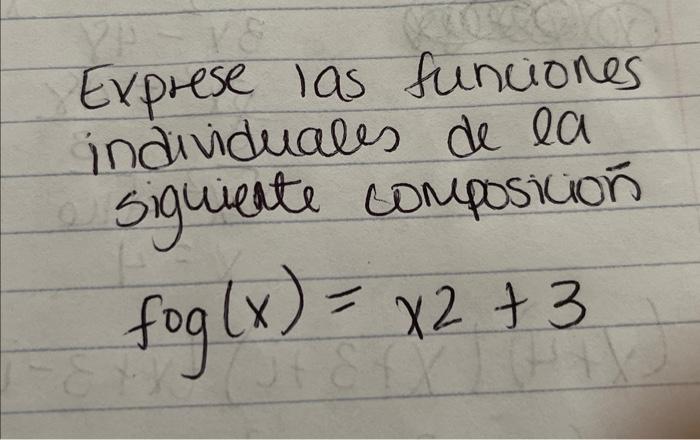 Exprese las funciones
individuales de la
siguiente composición
fog(x) = x2 + 3